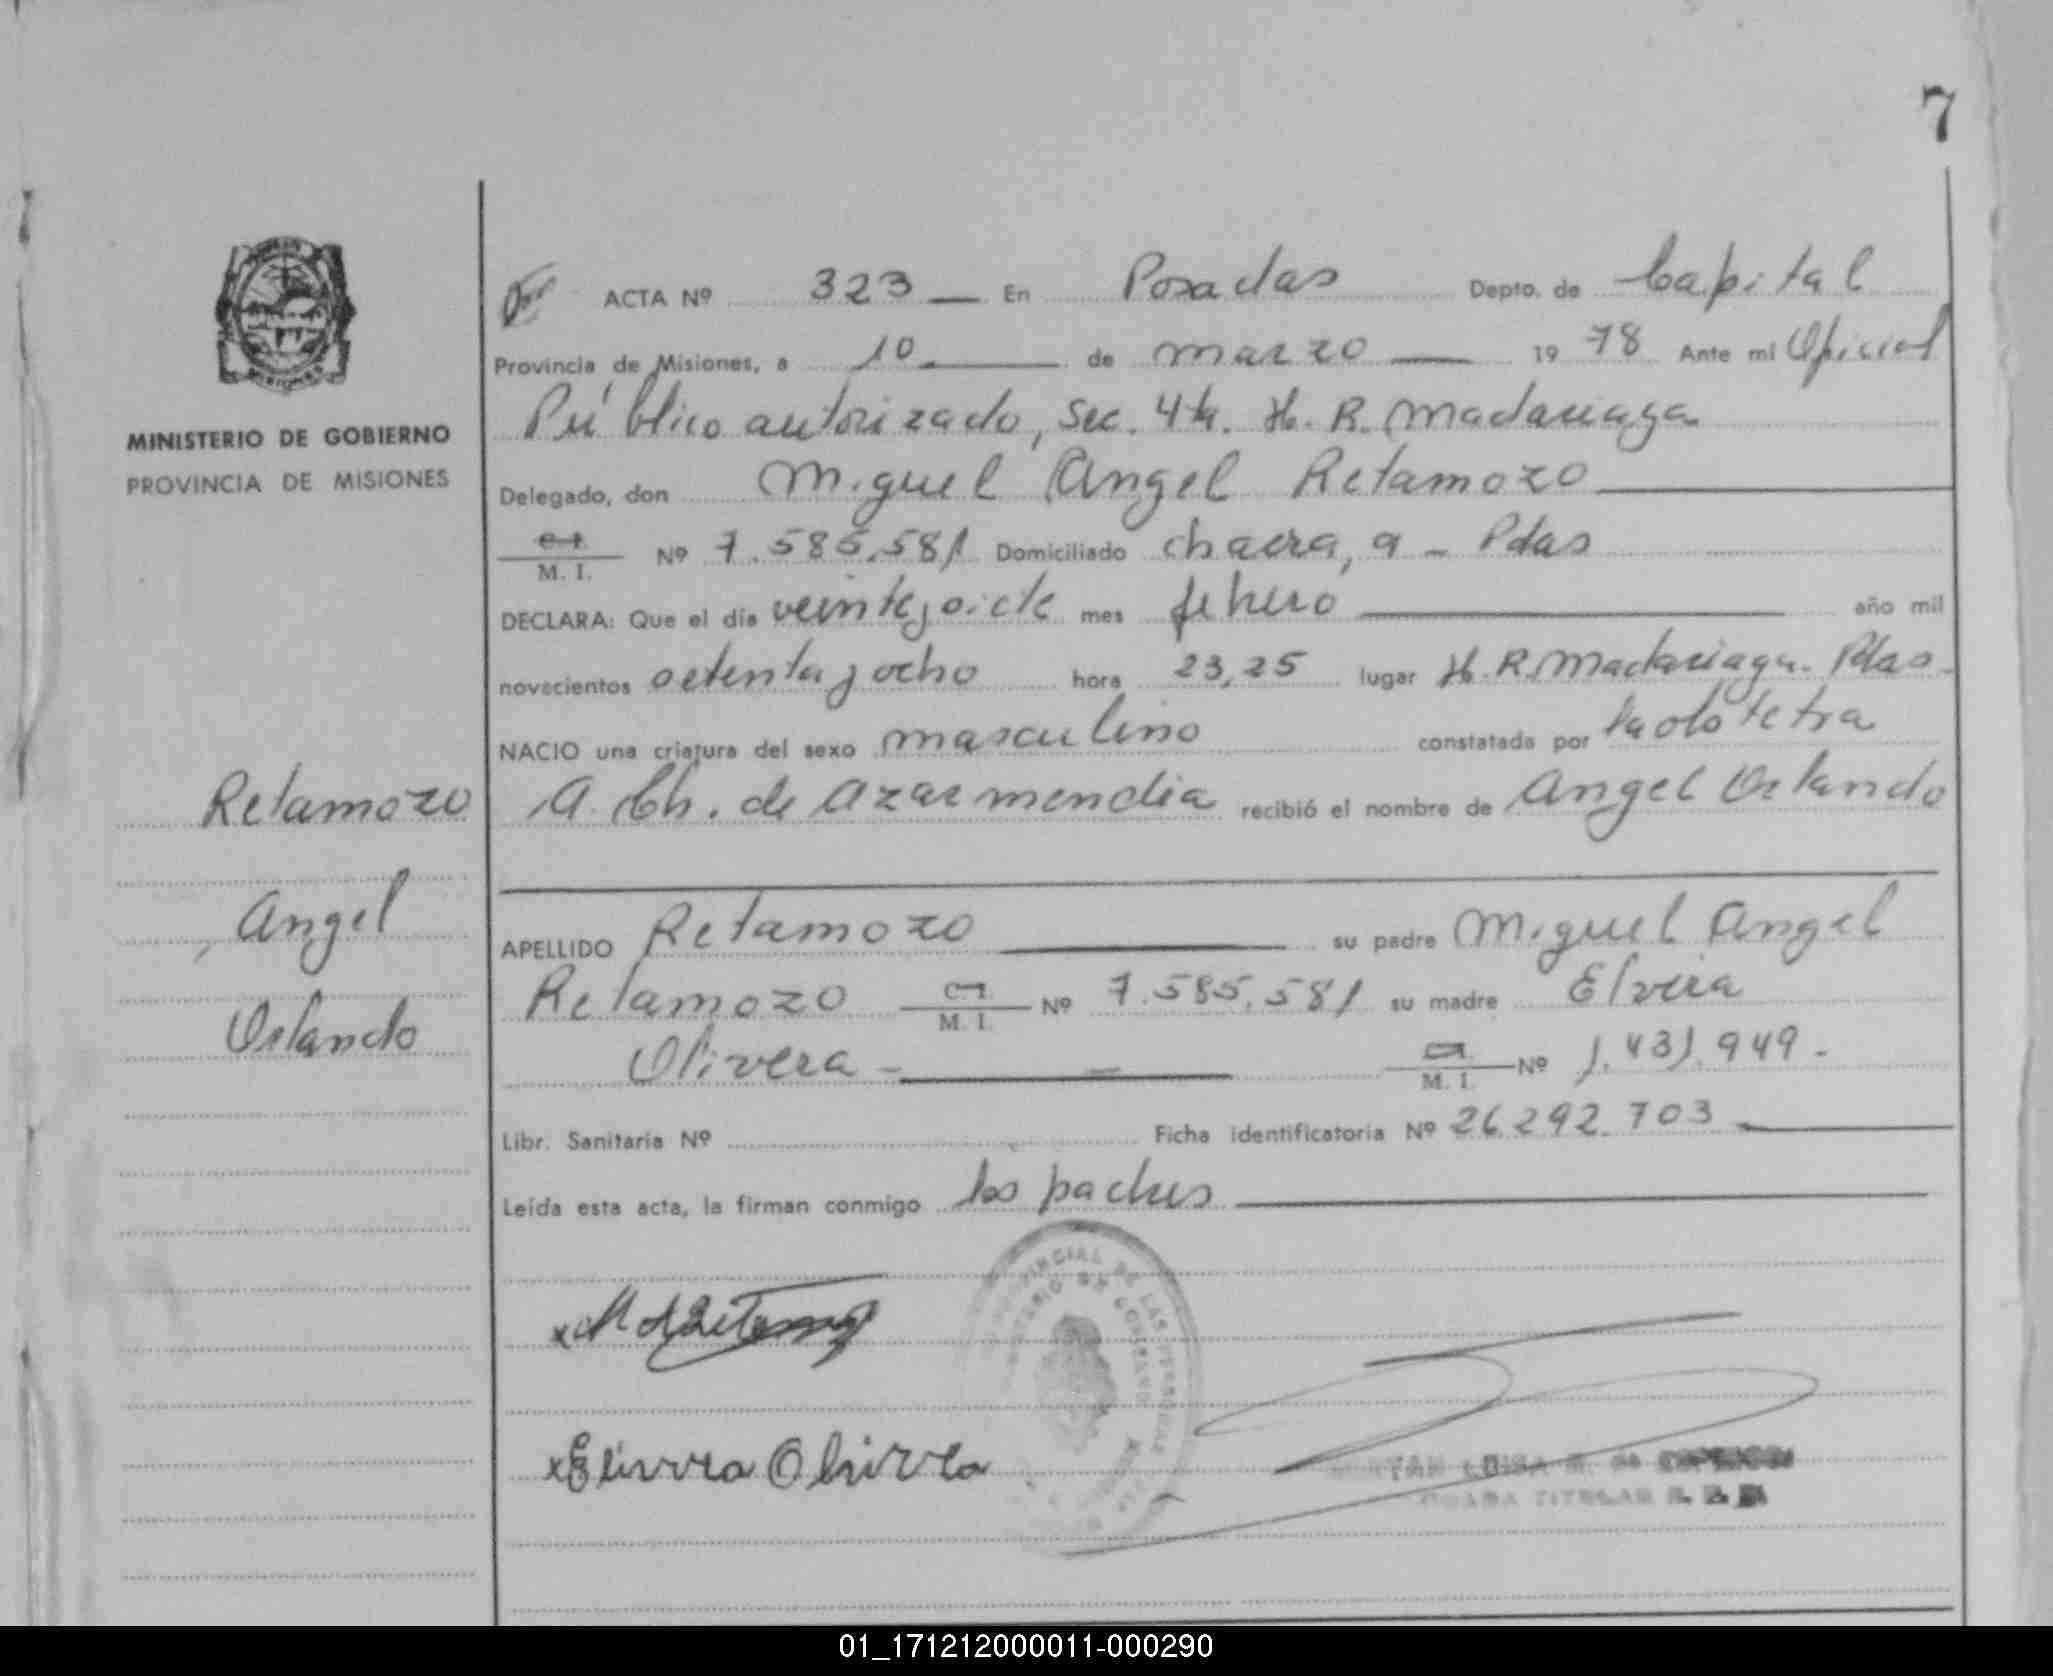 7
ACTA Nº 323 En Posadas Depto. de Capital
Provincia de Misiones, a 10 de marzo 1978 Ante mí Oficial
Público autorizado, Sec. 4ta. H. R. Madariaga
Delegado, don Miguel Angel Retamozo
C. I. M. I. Nº 7.585.581 Domiciliado chacra, 9 - Pdas
DECLARA: Que el día veintisiete mes febrero año mil
novecientos setenta y ocho hora 23,25 lugar H. R. Madariaga. Pdas.
NACIO una criatura del sexo masculino constatada por la obstetra
A. Ch. de Azarmendia recibió el nombre de Angel Orlando
APELLIDO Retamozo su padre Miguel Angel
Retamozo C. I. M. I. Nº 7.585.581 su madre Elvira
Olivera - C. I. M. I. Nº 1.431.949.-
Libr. Sanitaria Nº Ficha identificatoria Nº 26.292.703
Leída esta acta, la firman conmigo los padres
x Elvira Olivera
MINISTERIO DE GOBIERNO
PROVINCIA DE MISIONES
Retamozo
, Angel
Orlando
01_171212000011-000290